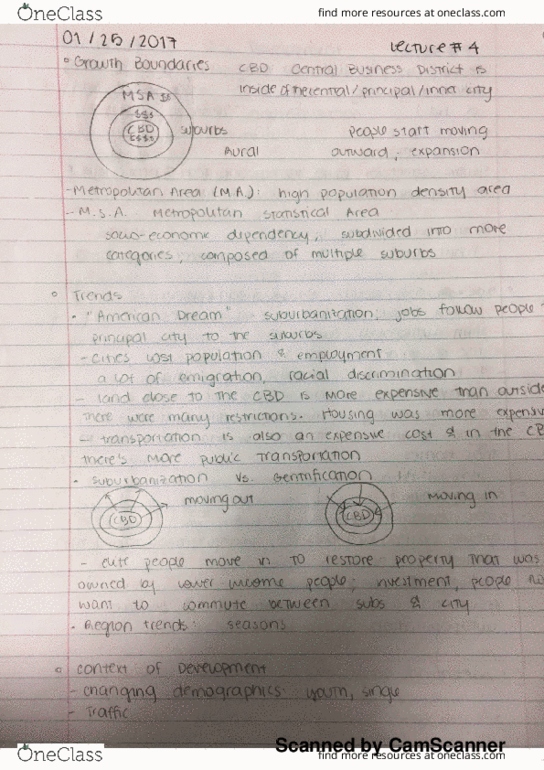 OneClass
find more resources at oneclass.com
01/25/2017
Lecture #4
Growth Boundaries
CBD Central Business District is
inside of the central/principal/inner city
MSA $$
$$$
CBD
$$$$
suburbs
Rural
people start moving
outward; expansion
- Metropolitan Area (M.A): high population density area
- M.S.A. Metropolitan Statistical Area
socio-economic dependency, subdivided into more
categories; composed of multiple suburbs
Trends
"American Dream" suburbanitation; jobs follow people
principal city to the suburbs
- cities lost population & employment
a lot of emigration, racial discrimination
- land close to the CBD is more expensive than outside
There were many restrictions. Housing was more expens
- transportation is also an expensive cost & in the CB
there's more public transportation
suburbanization vs. Gentrification
CBD
moving out
CBD
moving in
- people move in to restore property that was
owned by lower income people; investment, people
want to commute between subs & city
Region trends: seasons
Context of Development
- changing demographics youth, single
- Traffic
Scanned by CamScanner
OneClass
find more resources at oneclass.com